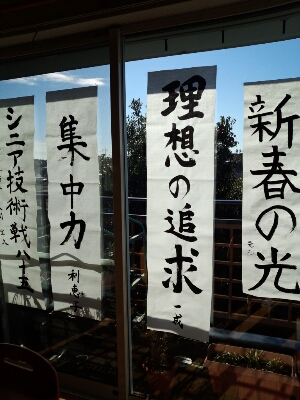 新春の光
理想の追求
一成
集中力
利恵子
シニア技術戦八十五